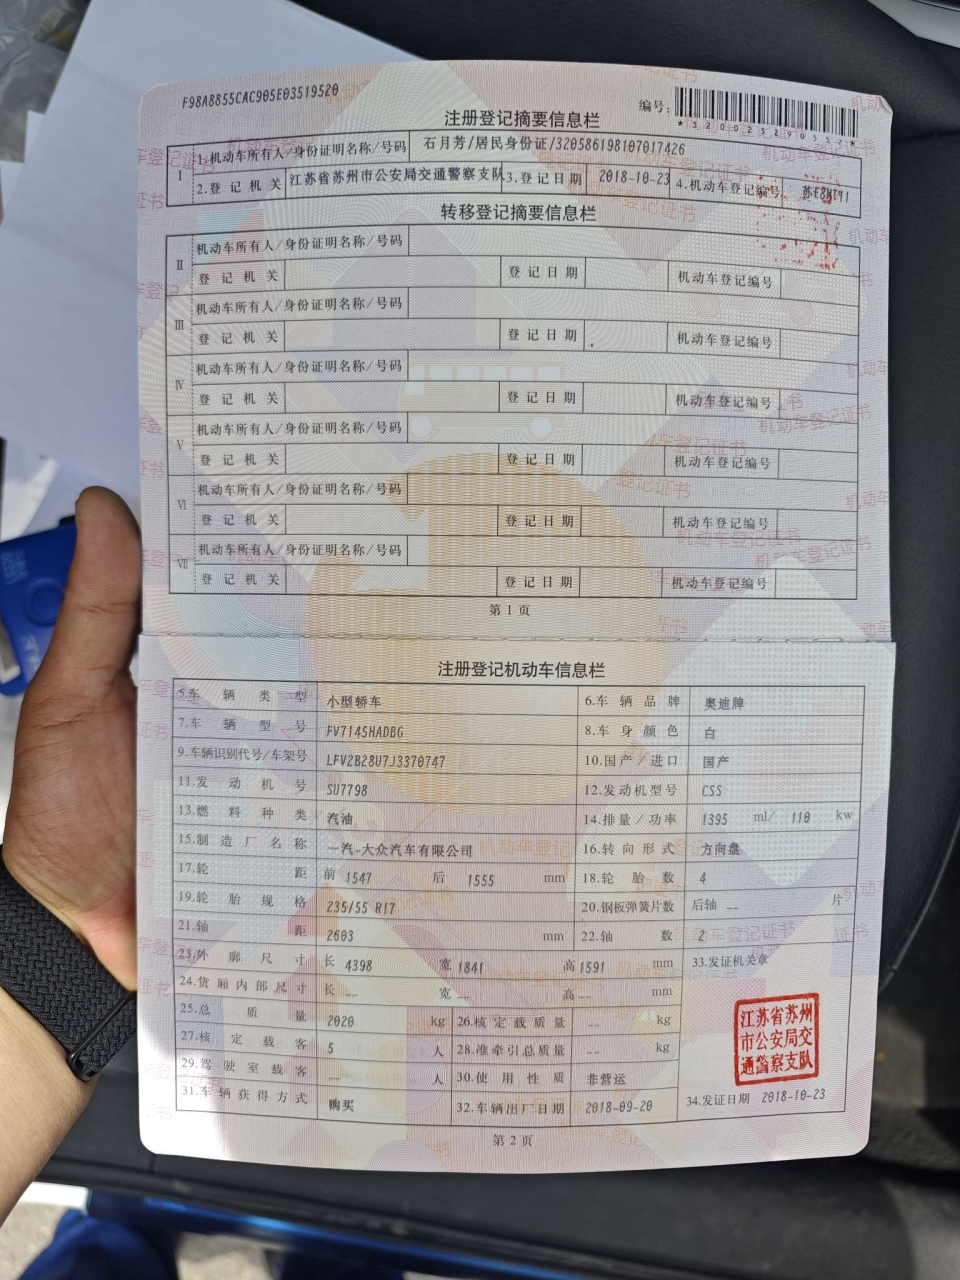 F98A8855CAC905E03519520
编号:
*320025290557*
注册登记摘要信息栏
Ⅰ 1.机动车所有人/身份证明名称/号码 石月芳/居民身份证/320586198107017426
2.登记机关 江苏省苏州市公安局交通警察支队 3.登记日期 2018-10-23 4.机动车登记编号
转移登记摘要信息栏
Ⅱ 机动车所有人/身份证明名称/号码
登记机关 登记日期 机动车登记编号
Ⅲ 机动车所有人/身份证明名称/号码
登记机关 登记日期 机动车登记编号
Ⅳ 机动车所有人/身份证明名称/号码
登记机关 登记日期 机动车登记编号
Ⅴ 机动车所有人/身份证明名称/号码
登记机关 登记日期 机动车登记编号
Ⅵ 机动车所有人/身份证明名称/号码
登记机关 登记日期 机动车登记编号
Ⅶ 机动车所有人/身份证明名称/号码
登记机关 登记日期 机动车登记编号
第1页
注册登记机动车信息栏
5.车辆类型 小型轿车 6.车辆品牌 奥迪牌
7.车辆型号 FV7145HADBG 8.车身颜色 白
9.车辆识别代号/车架号 LFV2B28U7J3370747 10.国产/进口 国产
11.发动机号 SU7798 12.发动机型号 CSS
13.燃料种类 汽油 14.排量/功率 1395 ml/ 110 kw
15.制造厂名称 一汽-大众汽车有限公司 16.转向形式 方向盘
17.轮距 前 1547 后 1555 mm 18.轮胎数 4
19.轮胎规格 235/55 R17 20.钢板弹簧片数 后轴 -- 片
21.轴距 2603 mm 22.轴数 2
23.外廓尺寸 长 4398 宽 1841 高 1591 mm 33.发证机关章
24.货厢内部尺寸 长 -- 宽 -- 高 -- mm
25.总质量 2020 kg 26.核定载质量 -- kg
27.核定载客 5 人 28.准牵引总质量 -- kg
29.驾驶室载客 -- 人 30.使用性质 非营运
31.车辆获得方式 购买 32.车辆出厂日期 2018-09-20 34.发证日期 2018-10-23
江苏省苏州
市公安局交
通警察支队
第2页